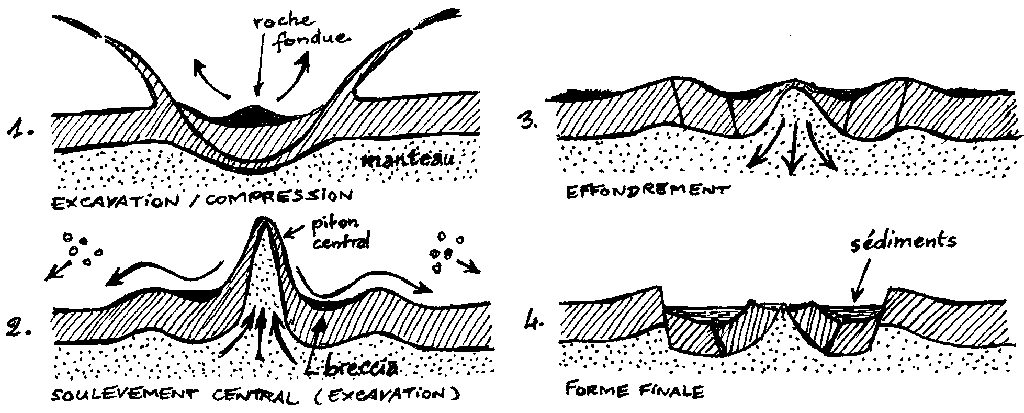 1.
roche
fondue
manteau
EXCAVATION / COMPRESSION
2.
piton
central
breccia
SOULEVEMENT CENTRAL (EXCAVATION)
3.
EFFONDREMENT
4.
sédiments
FORME FINALE